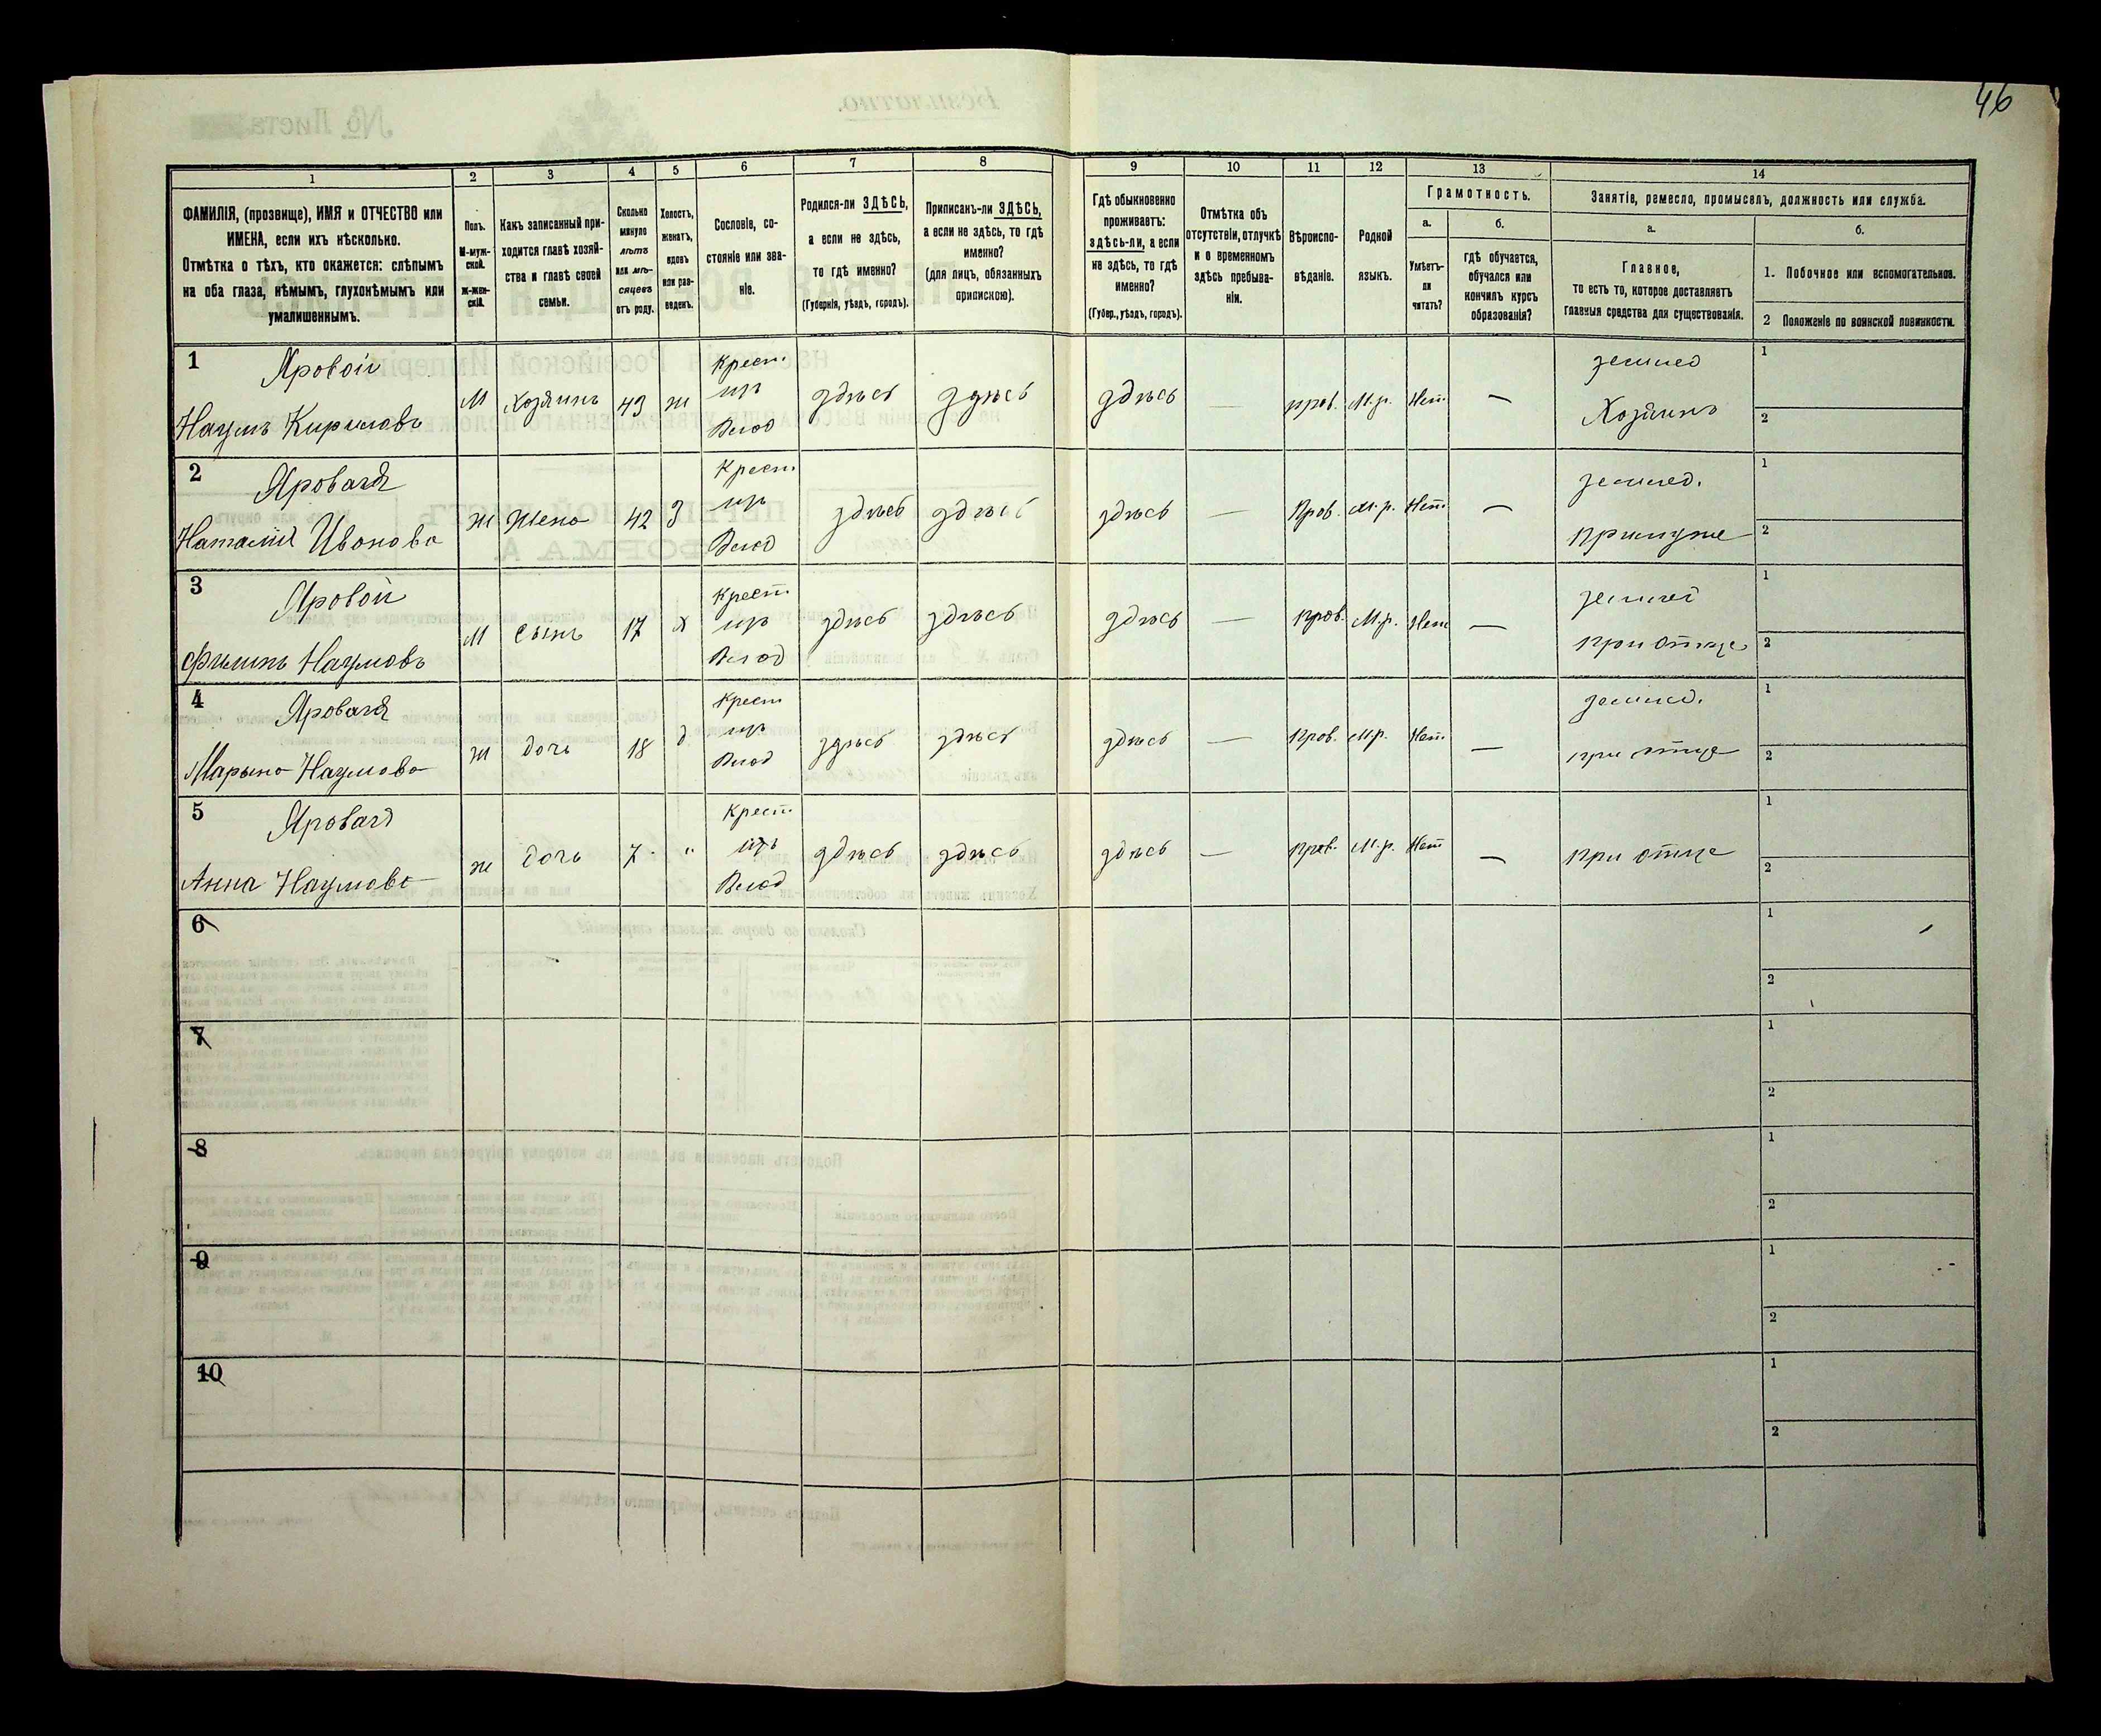 46
1 2 3 4 5 6 7 8 9 10 11 12 13 14
ФАМИЛІЯ, (прозвище), ИМЯ и ОТЧЕСТВО или
ИМЕНА, если ихъ нѣсколько.
Отмѣтка о тѣхъ, кто окажется: слѣпымъ
на оба глаза, нѣмымъ, глухонѣмымъ или
умалишеннымъ.
Полъ.
М-муж-
ской.
Ж-жен-
скій.
Какъ записанный при-
ходится главѣ хозяй-
ства и главѣ своей
семьи.
Сколько
минуло
лѣтъ
или мѣ-
сяцевъ
отъ роду.
Холостъ,
женатъ,
вдовъ
или раз-
веденъ.
Сословіе, со-
стояніе или зва-
ніе.
Родился-ли ЗДѢСЬ,
а если не здѣсь,
то гдѣ именно?
(Губернія, уѣздъ, городъ).
Приписанъ-ли ЗДѢСЬ,
а если не здѣсь, то гдѣ
именно?
(для лицъ, обязанныхъ
припискою).
Гдѣ обыкновенно
проживаетъ:
здѣсь-ли, а если
не здѣсь, то гдѣ
именно?
(Губер., уѣздъ, городъ).
Отмѣтка объ
отсутствіи, отлучкѣ
и о временномъ
здѣсь пребыва-
ніи.
Вѣроиспо-
вѣданіе.
Родной
языкъ.
Грамотность.
а.
Умѣетъ-
ли
читать?
б.
гдѣ обучается,
обучался или
кончилъ курсъ
образованія?
Занятіе, ремесло, промыселъ, должность или служба.
а.
Главное,
то есть то, которое доставляетъ
главныя средства для существованія.
б.
1. Побочное или вспомогательное.
2 Положеніе по воинской повинности.
1 Яровой Крест. землед 1
Наумъ Кириловъ М Хозяинъ 43 ж изъ здѣсь здѣсь здѣсь — прав. М.р. Нет — Хозяинъ 2
Влад
2 Яровая Крест. землед. 1
Наталія Иванова ж жена 42 З изъ здѣсь здѣсь здѣсь — Прав. М.р. Нет — при муже 2
Влад
3 Яровой Крест землед 1
Филипъ Наумовъ М сынъ 17 х изъ здѣсь здѣсь здѣсь — Прав. М.р. Нет — при отце 2
Влад
4 Яровая Крест землед. 1
Марына Наумова ж дочь 18 д изъ здѣсь здѣсь здѣсь — Прав. М.р. Нет — при отце 2
Влад
5 Яровая Крест 1
Анна Наумова ж дочь 7 " изъ здѣсь здѣсь здѣсь — Прав. М.р. Нет — при отце 2
Влад
6 1
2
7 1
2
8 1
2
9 1
2
10 1
2